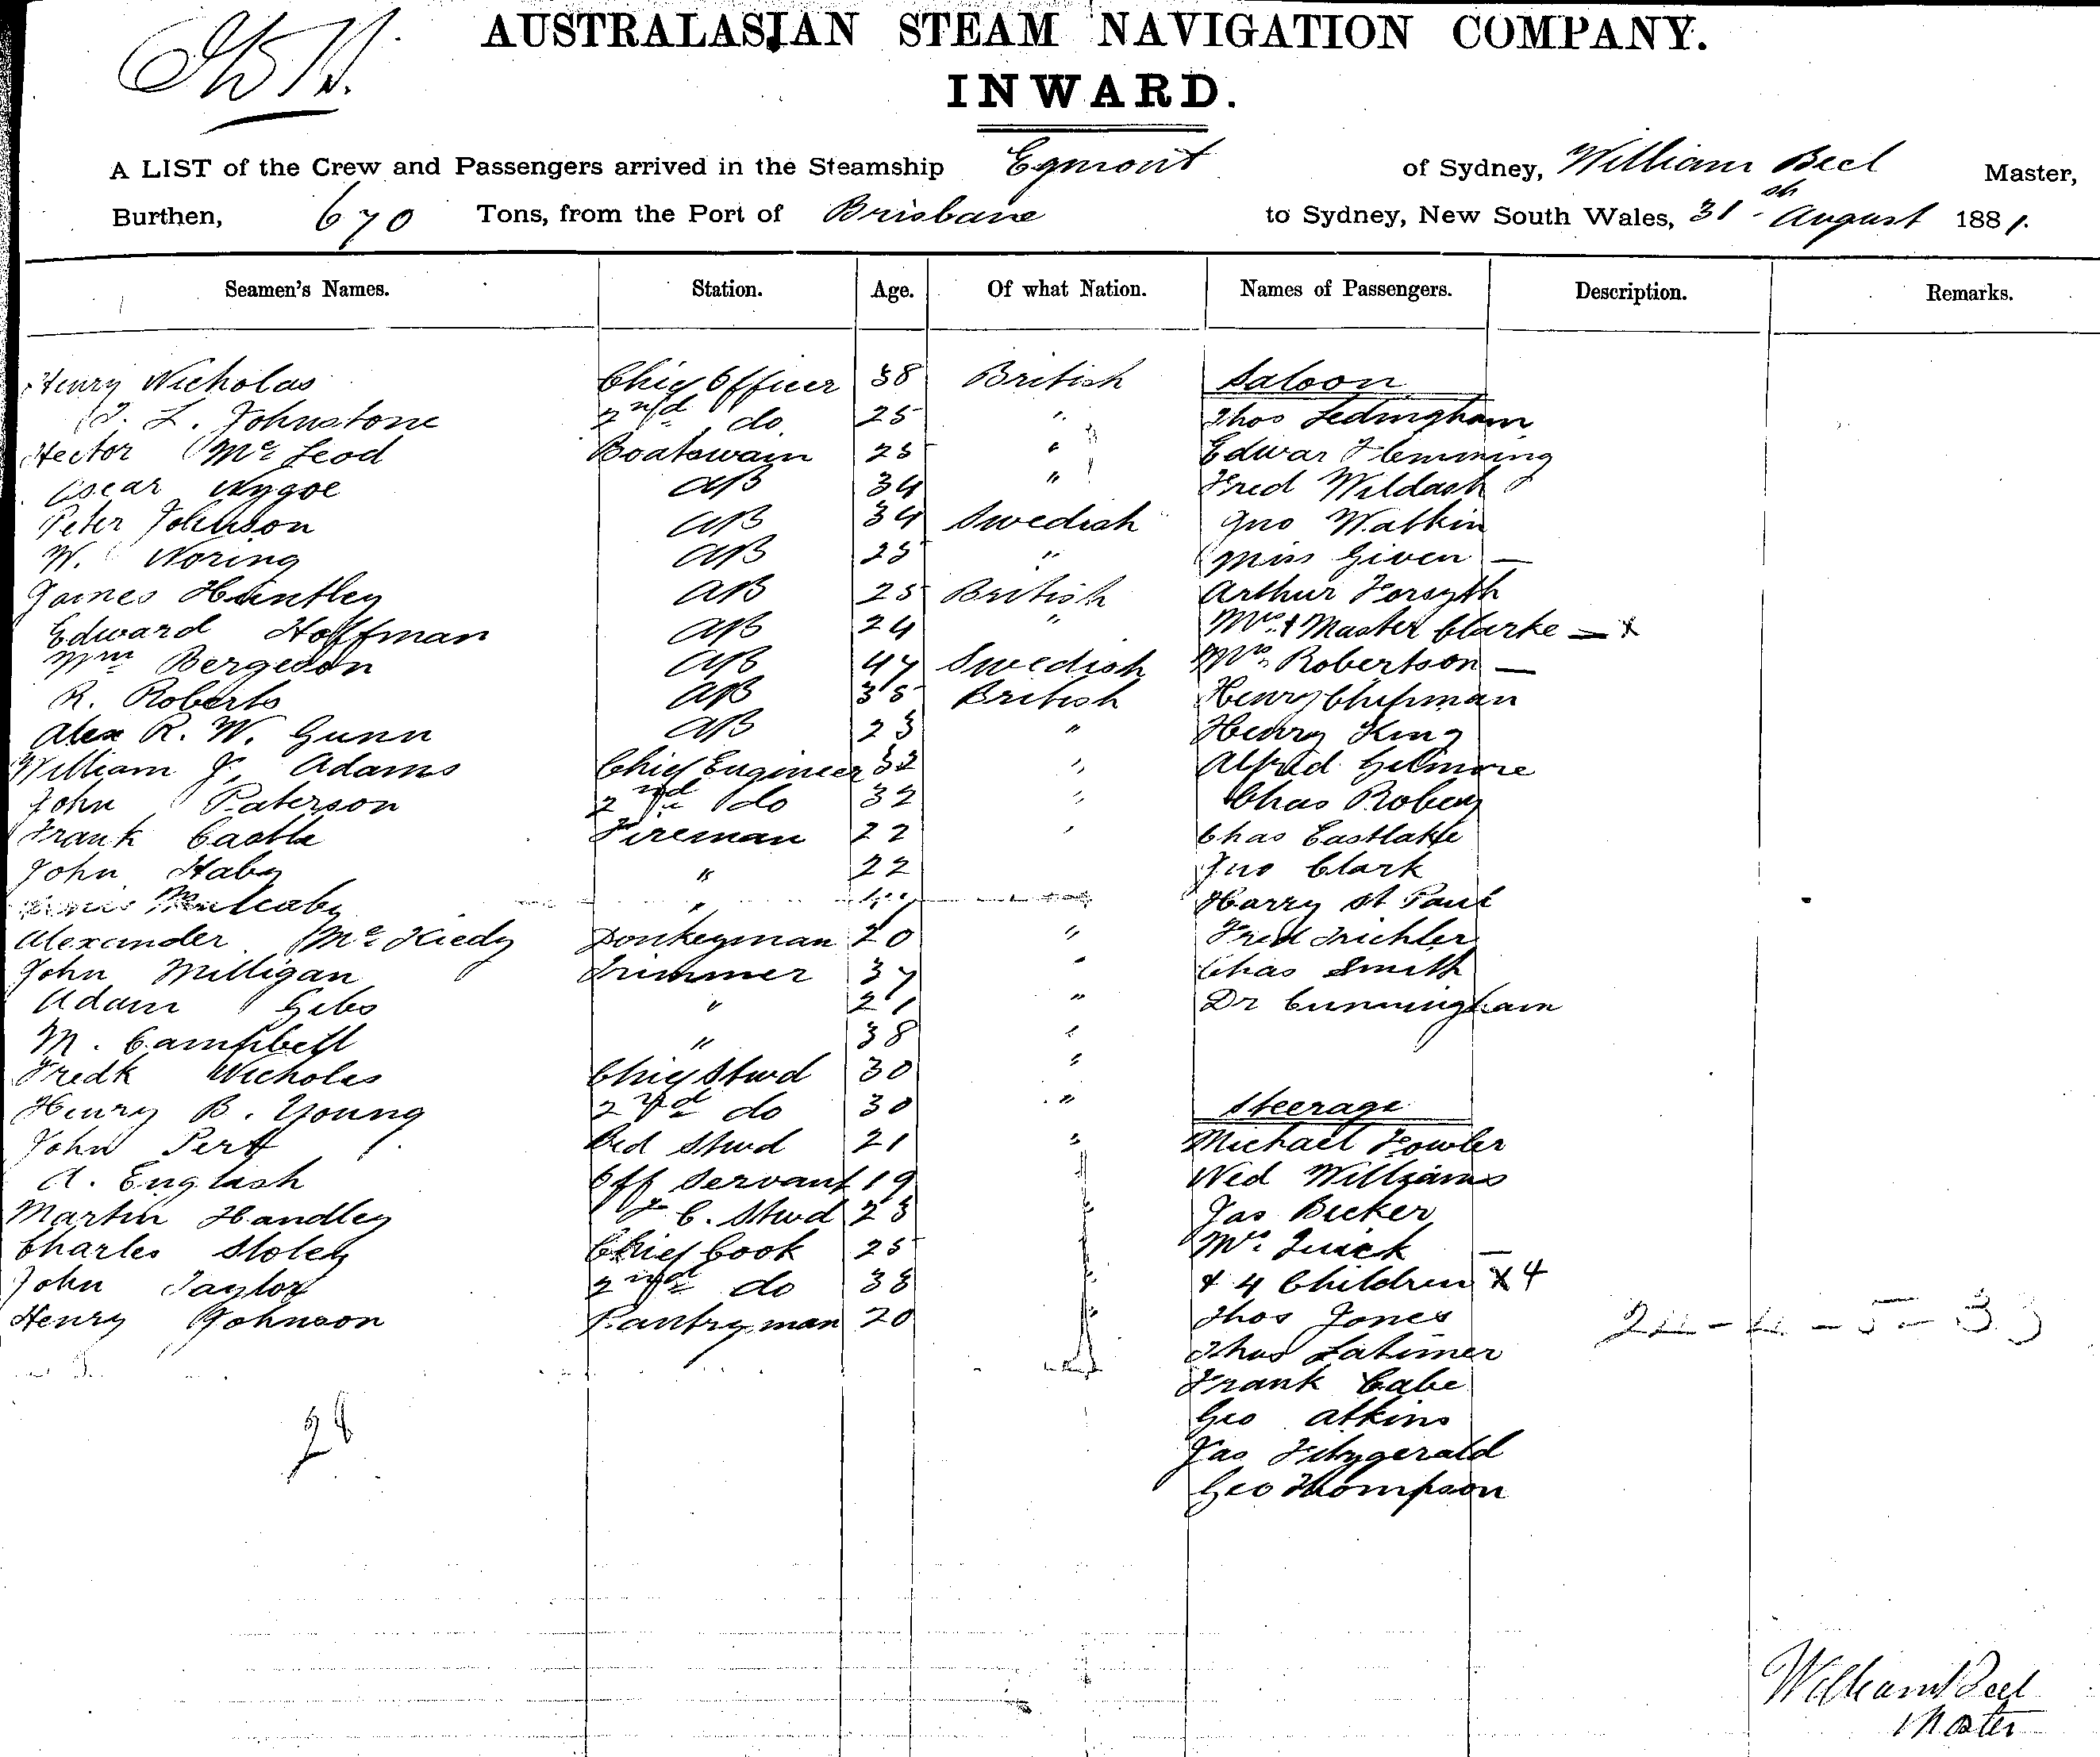 AUSTRALASIAN STEAM NAVIGATION COMPANY.
INWARD.
A LIST of the Crew and Passengers arrived in the Steamship Egmont of Sydney, William Beel Master,
Burthen, 670 Tons, from the Port of Brisbane to Sydney, New South Wales, 31st August 1881.
Seamen's Names. Station. Age. Of what Nation. Names of Passengers. Description. Remarks.
Henry Nicholas Chief Officer 38 British Saloon
L. Johnstone 2nd do 25 " Thos Ledingham
Hector Mc Leod Boatswain 25 " Edwar Flemming
Oscar Nygoe AB 34 " Fred Wildash
Peter Johnson AB 34 Swedish Jno Watkin
W. Noring AB 25 " Miss Given —
James Huntley AB 25 British Arthur Forsyth
Edward Hoffman AB 24 " Mrs & Master Clarke — x
Wm Bergedon AB 47 Swedish Mrs Robertson —
R. Roberts AB 35 British Henry Chipman
Alex R. W. Gunn AB 23 " Henry King
William J. Adams Chief Engineer 32 " Alfred Gilmore
John Paterson 2nd do 32 " Chas Robey
Frank Castle Fireman 22 " Chas Eastlake
John Haby " 22 Jno Clark
Mulcaby " Harry St Paul
Alexander Mc Kiedy Donkeyman 20 " Fred Trichler
John Milligan Trimmer 37 " Chas Smith
Adam Gibs " 21 " Dr Cunningham
M. Campbell " 38 "
Fredk Nicholas Chief Stwd 30 "
Henry B. Young 2nd do 30 " Steerage
John Pert Bed Stwd 21 " Michael Fowler
A. English Off Servant 19 Ned Williams
Martin Handley C. Stwd 23 Jas Becker
Charles Stoley Chief Cook 25 Mrs Quick —
John Taylor 2nd do 38 & 4 Children x 4
Henry Johnson Pantryman 20 Thos Jones
Thos Latimer
Frank Cabe
28 Geo Atkins
Jas Fitzgerald
Geo Thompson
William Beel
Master